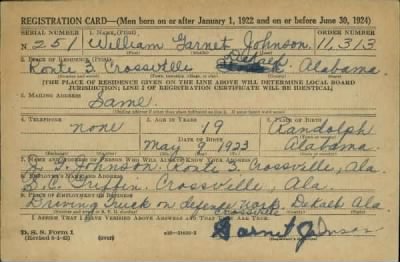 REGISTRATION CARD—(Men born on or after January 1, 1922 and on or before June 30, 1924)
SERIAL NUMBER 1. NAME (Print) ORDER NUMBER
N 251 William Garnet Johnson 11,313
(First) (Middle) (Last)
2. PLACE OF RESIDENCE (Print)
Route 3 Crossville DeKalb Alabama
[THE PLACE OF RESIDENCE GIVEN ON THE LINE ABOVE WILL DETERMINE LOCAL BOARD
JURISDICTION; LINE 2 OF REGISTRATION CERTIFICATE WILL BE IDENTICAL]
3. MAILING ADDRESS
Same
4. TELEPHONE 5. AGE IN YEARS 6. PLACE OF BIRTH
none 19 Randolph
DATE OF BIRTH
May 9 1923 Alabama
7. NAME AND ADDRESS OF PERSON WHO WILL ALWAYS KNOW YOUR ADDRESS
Johnson Route 3. Crossville, Ala.
8. EMPLOYER'S NAME AND ADDRESS
Griffin. Crossville, Ala.
9. PLACE OF EMPLOYMENT OR BUSINESS
Driving Truck on defence work. DeKalb Ala
Crossville
I AFFIRM THAT I HAVE VERIFIED ABOVE ANSWERS AND THAT THEY ARE TRUE.
D. S. S. Form 1
(over)
Garnet Johnson